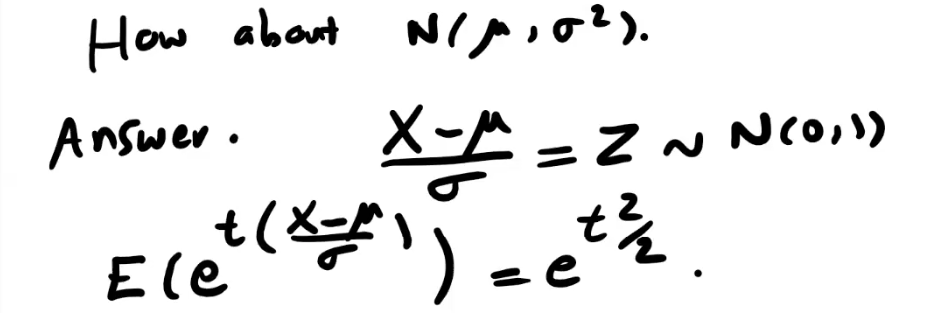 How about N(μ, σ²).
Answer. (X-μ)/σ = Z ~ N(0,1)
E(e^{t((X-μ)/σ)}) = e^{t²/2}.